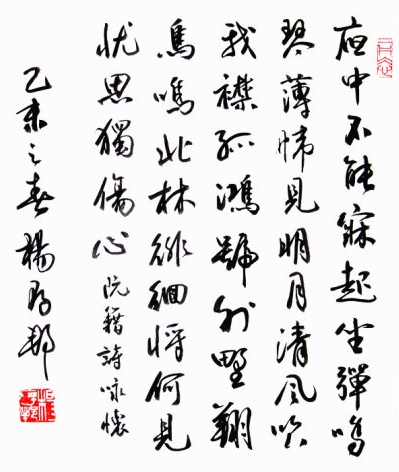 夜中不能寐起坐彈鳴
琴薄帏見明月清風吹
我襟孤鴻號外野翔
鳥鳴北林徘徊將何見
忧思獨傷心 阮籍詩咏懷
乙未之春楊